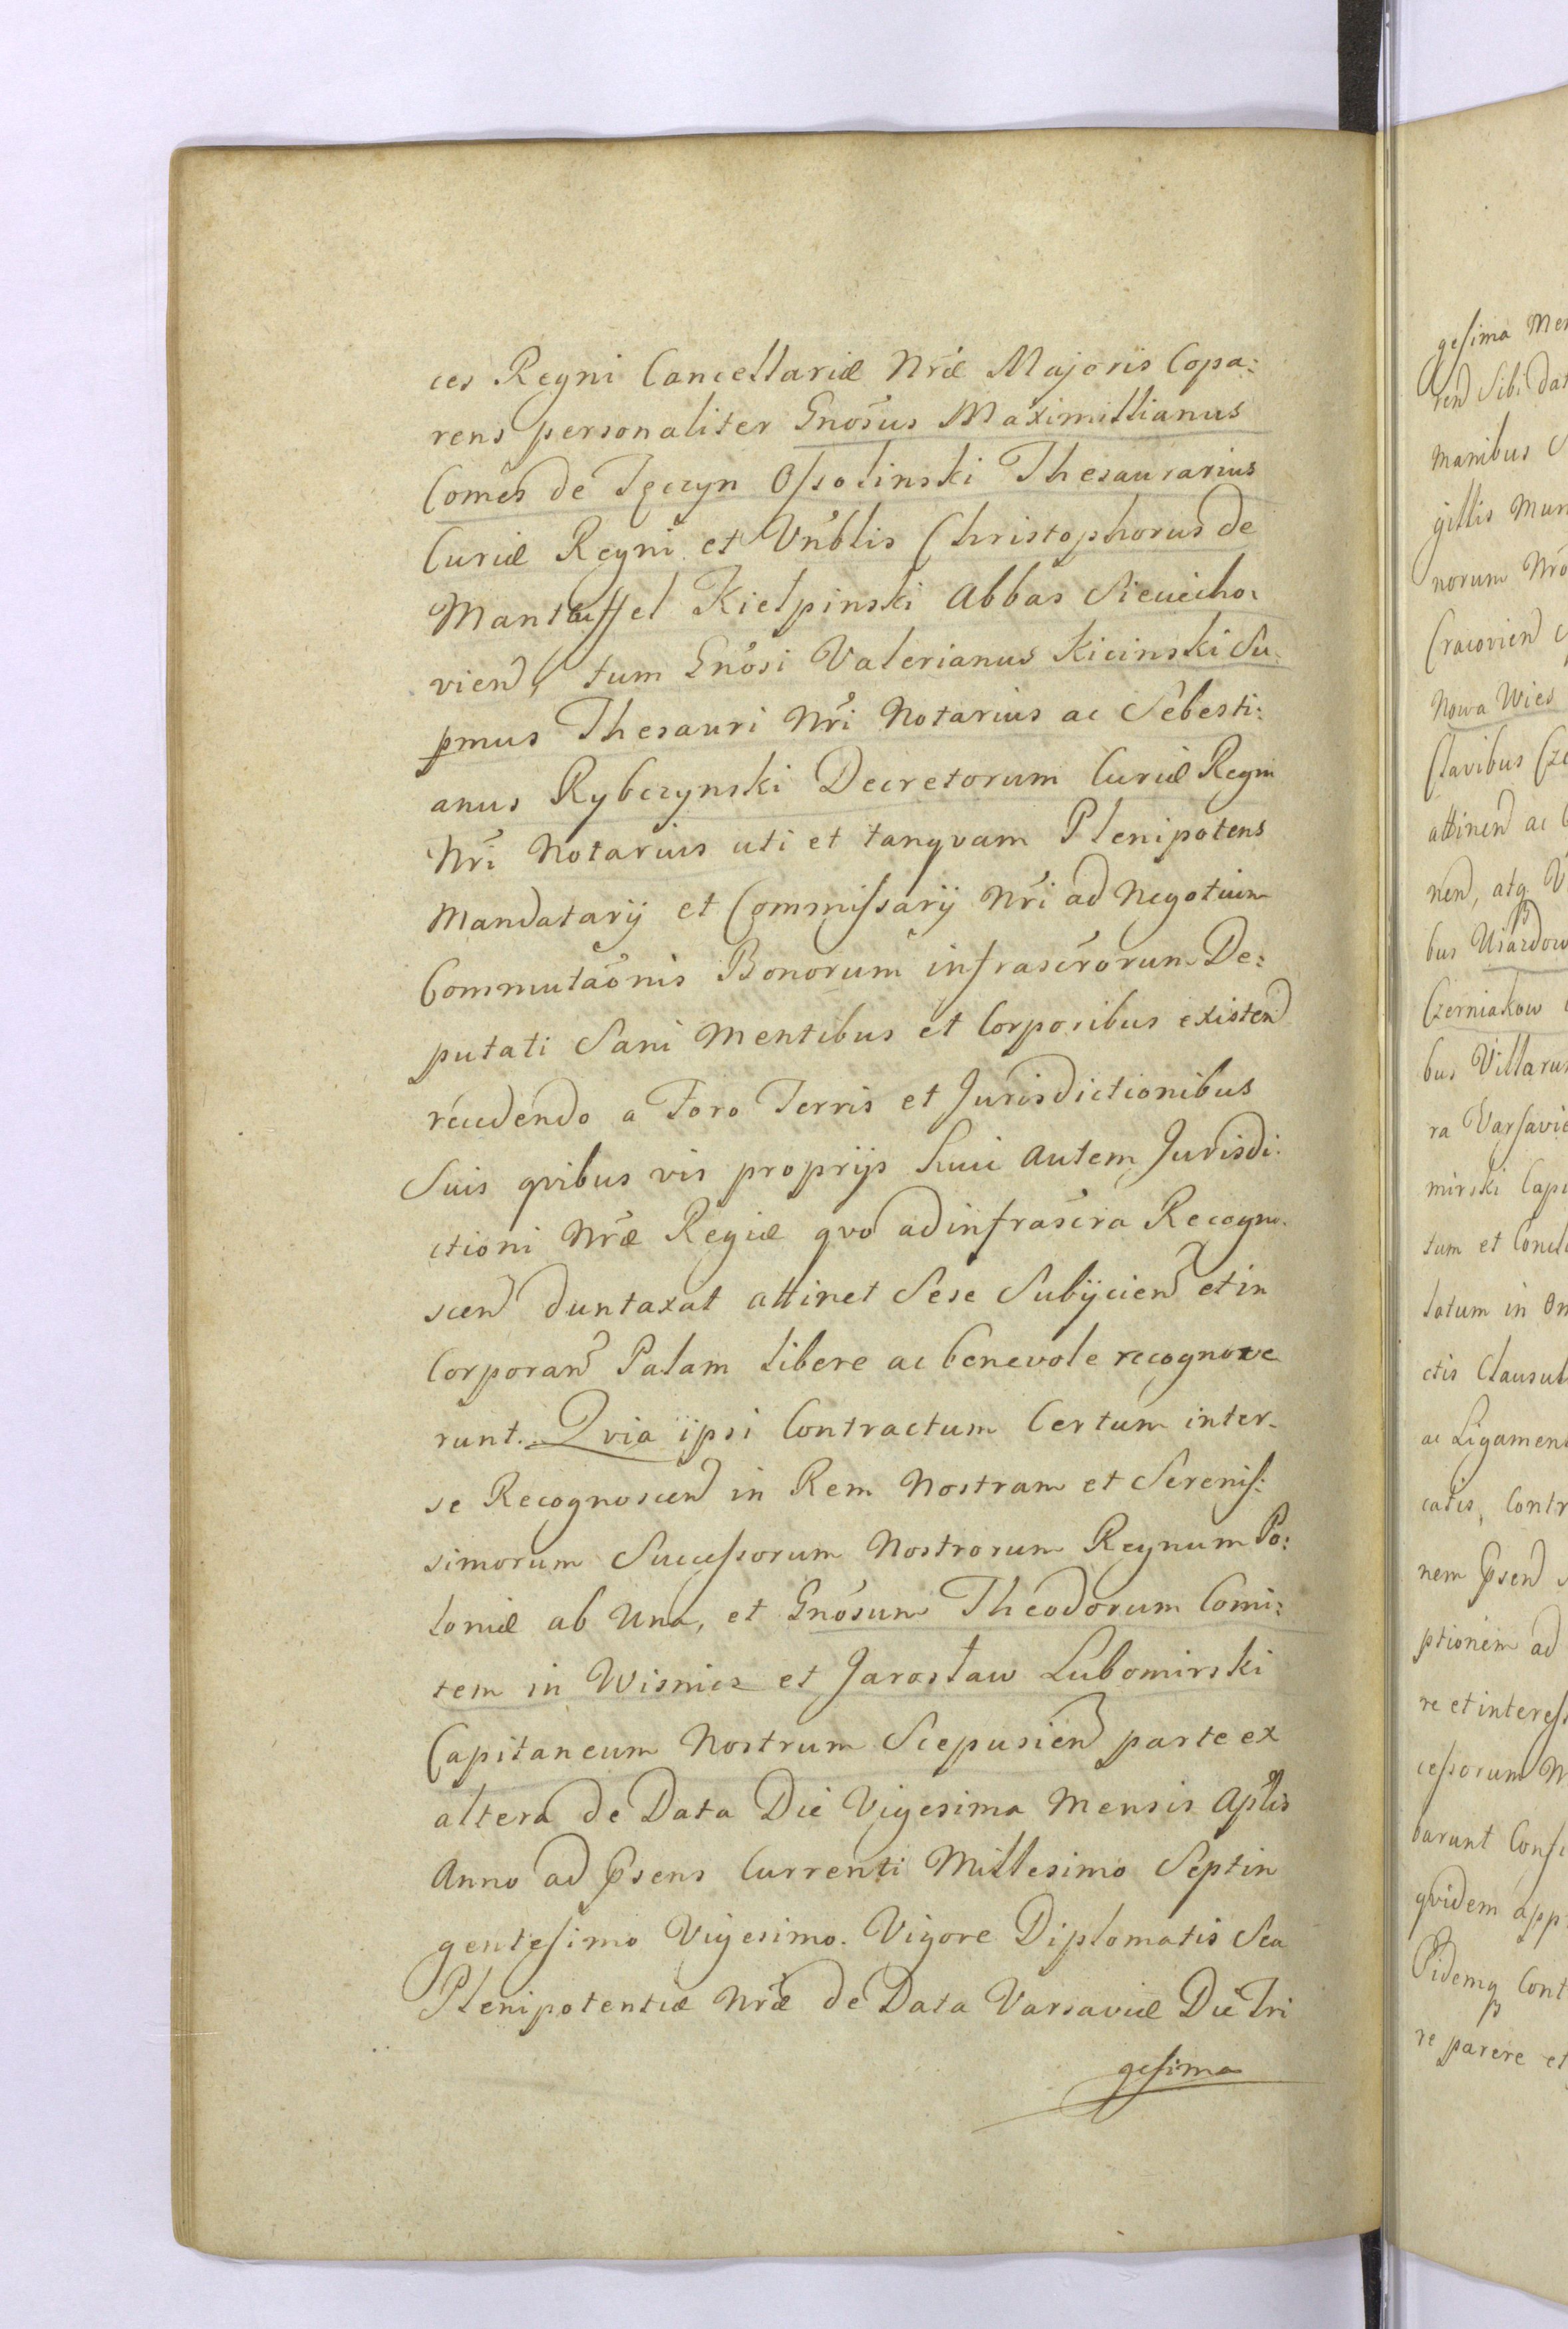 ces Regni Cancellariæ Nræ Majoris Copa:
rens personaliter Gnosus Maximillianus
Comes de Tęczyn Ossolinski Thesaurarius
Curiæ Regni et Vnblis Christophorus de
Manteuffel Kiełpinski Abbas Sieciecho:
vien, tum Gnosi Valerianus Kicinski Su:
pmus Thesauri Nri Notarius ac Sebesti:
anus Rybczynski Decretorum Curiæ Regni
Nri Notarius uti et tanqvam Plenipotens
Mandatarij et Commissarij Nri ad Negotium
Commutaonis Bonorum infrascrorum De:
putati Sani Mentibus et Corporibus existen
recedendo a Foro Terris et Jurisdictionibus
Suis qvibus vis proprijs huic autem Jurisdi:
ctioni Nræ Regiæ qvo ad infrascra Recogno:
scen duntaxat attinet Sese Subijcien et in
Corporan Palam libere ac benevole recognove
runt. Qvia ijpsi Contractum Certum inter-
se Recognoscen in Rem Nostram et Serenis:
simorum Successorum Nostrorum Regnum Po:
loniæ ab Una, et Gnosum Theodorum Comi:
tem in Wisnicz et Jarosław Lubomirski
Capitaneum Nostrum Scepusien parte ex
altera de Data Die Vigesima Mensis Aplis
Anno ad Psens Currenti Millesimo Septin
gentesimo Vigesimo. Vigore Diplomatis Seu
Plenipotentiæ Nræ de Data Varsaviæ Die Tri
gesima
gesima Men
ren Sibi dat
manibus S
gillis Mun
norum Nro
Cracovien
Nowa Wies
Clavibus Cze
attinen ac
nen, atq V
bus Uiazdow
Czerniakow
bus Villarum
ra Varsavie
mirski Capi
tum et Conclu
latum in Om
ctis Clausul
ac Ligamen
catis, Contr
nem Psen
ptionem ad
re et interess
cessorum N
barunt Consi
qvidem app
Pidemq Cont
re parere et